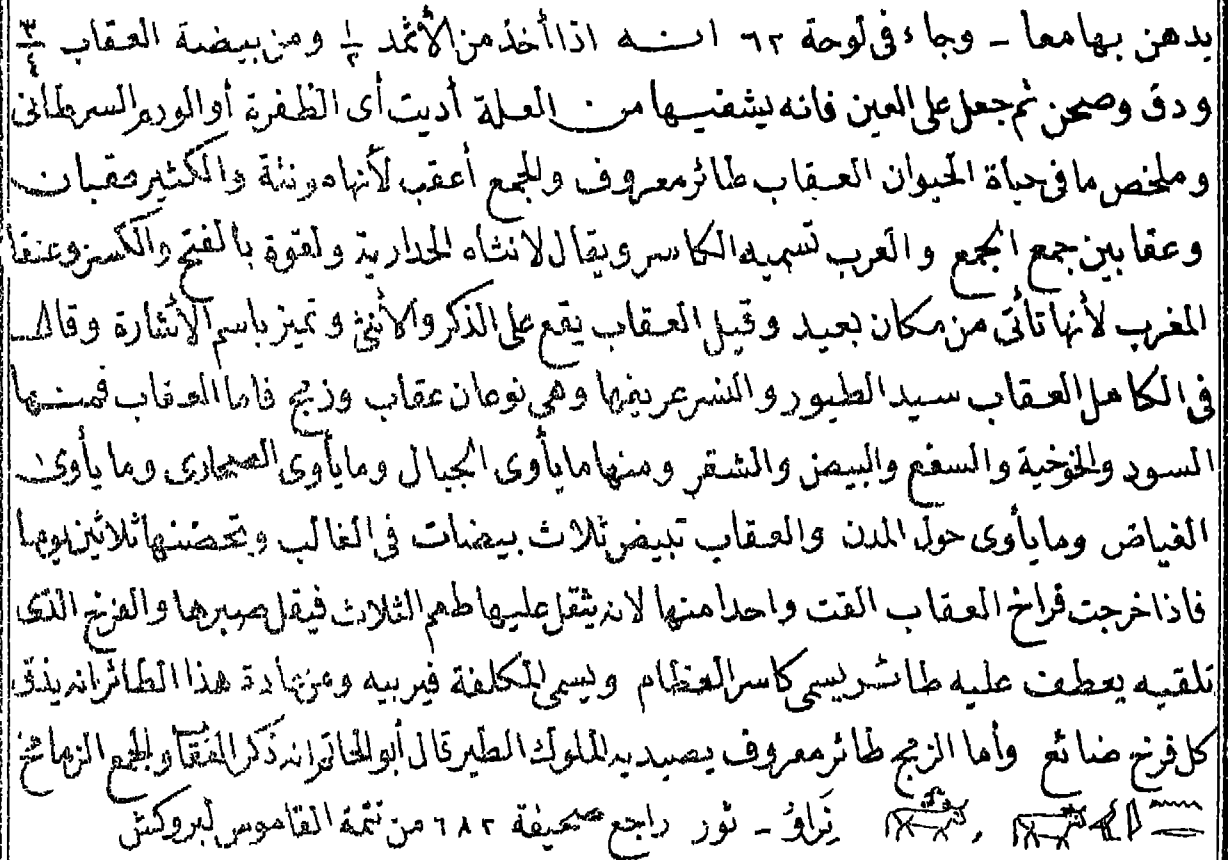 يدهن بها معا - وجاء فى لوحة ٦٢ انه اذا أخذ من الأثمد ١/٢ ومن بيضة العقاب ٣/٤
ودق وصحن ثم جعل على العين فانه يشفيها من العلة أديت أى الظفرة أو الورم السرطانى
وملخص ما فى حياة الحيوان العقاب طائر معروف والجمع أعقب لأنها مونثة والكثير عقبان
وعقابين جمع الجمع والعرب تسميه الكاسر ويقال لانثاه الحدارية ولقوة بالفتح والكسر وعنقا
المغرب لأنها تأتى من مكان بعيد وقيل العقاب يقع على الذكر والأنثى وتميز باسم الأشارة وقال
فى الكامل العقاب سيد الطيور والنسر عريفها وهى نوعان عقاب وزمج فاما العقاب فمنها
السود والخوخية والسفع والبيض والشقر ومنها ما يأوى الجبال وما يأوى الصحارى وما يأوى
الغياض وما يأوى حول المدن والعقاب تبيض ثلاث بيضات فى الغالب وتحضنها ثلاثين يوما
فاذا خرجت فراخ العقاب القت واحدا منها لانه يثقل عليها طعم الثلاث فيقل صبرها والفرخ الذى
تلقيه يعطف عليه طائر يسمى كاسر العظام ويسمى المكلفة فيربيه ومن عادة هذا الطائر انه يذق
كل فرخ ضائع وأما الزمج طائر معروف يصيد به الملوك الطير قال أبو الحاتم انه ذكر العقاب والجمع الزمامج
نراؤ - ثور راجع صحيفة ٦٨٢ من تتمة القاموس لبروكش